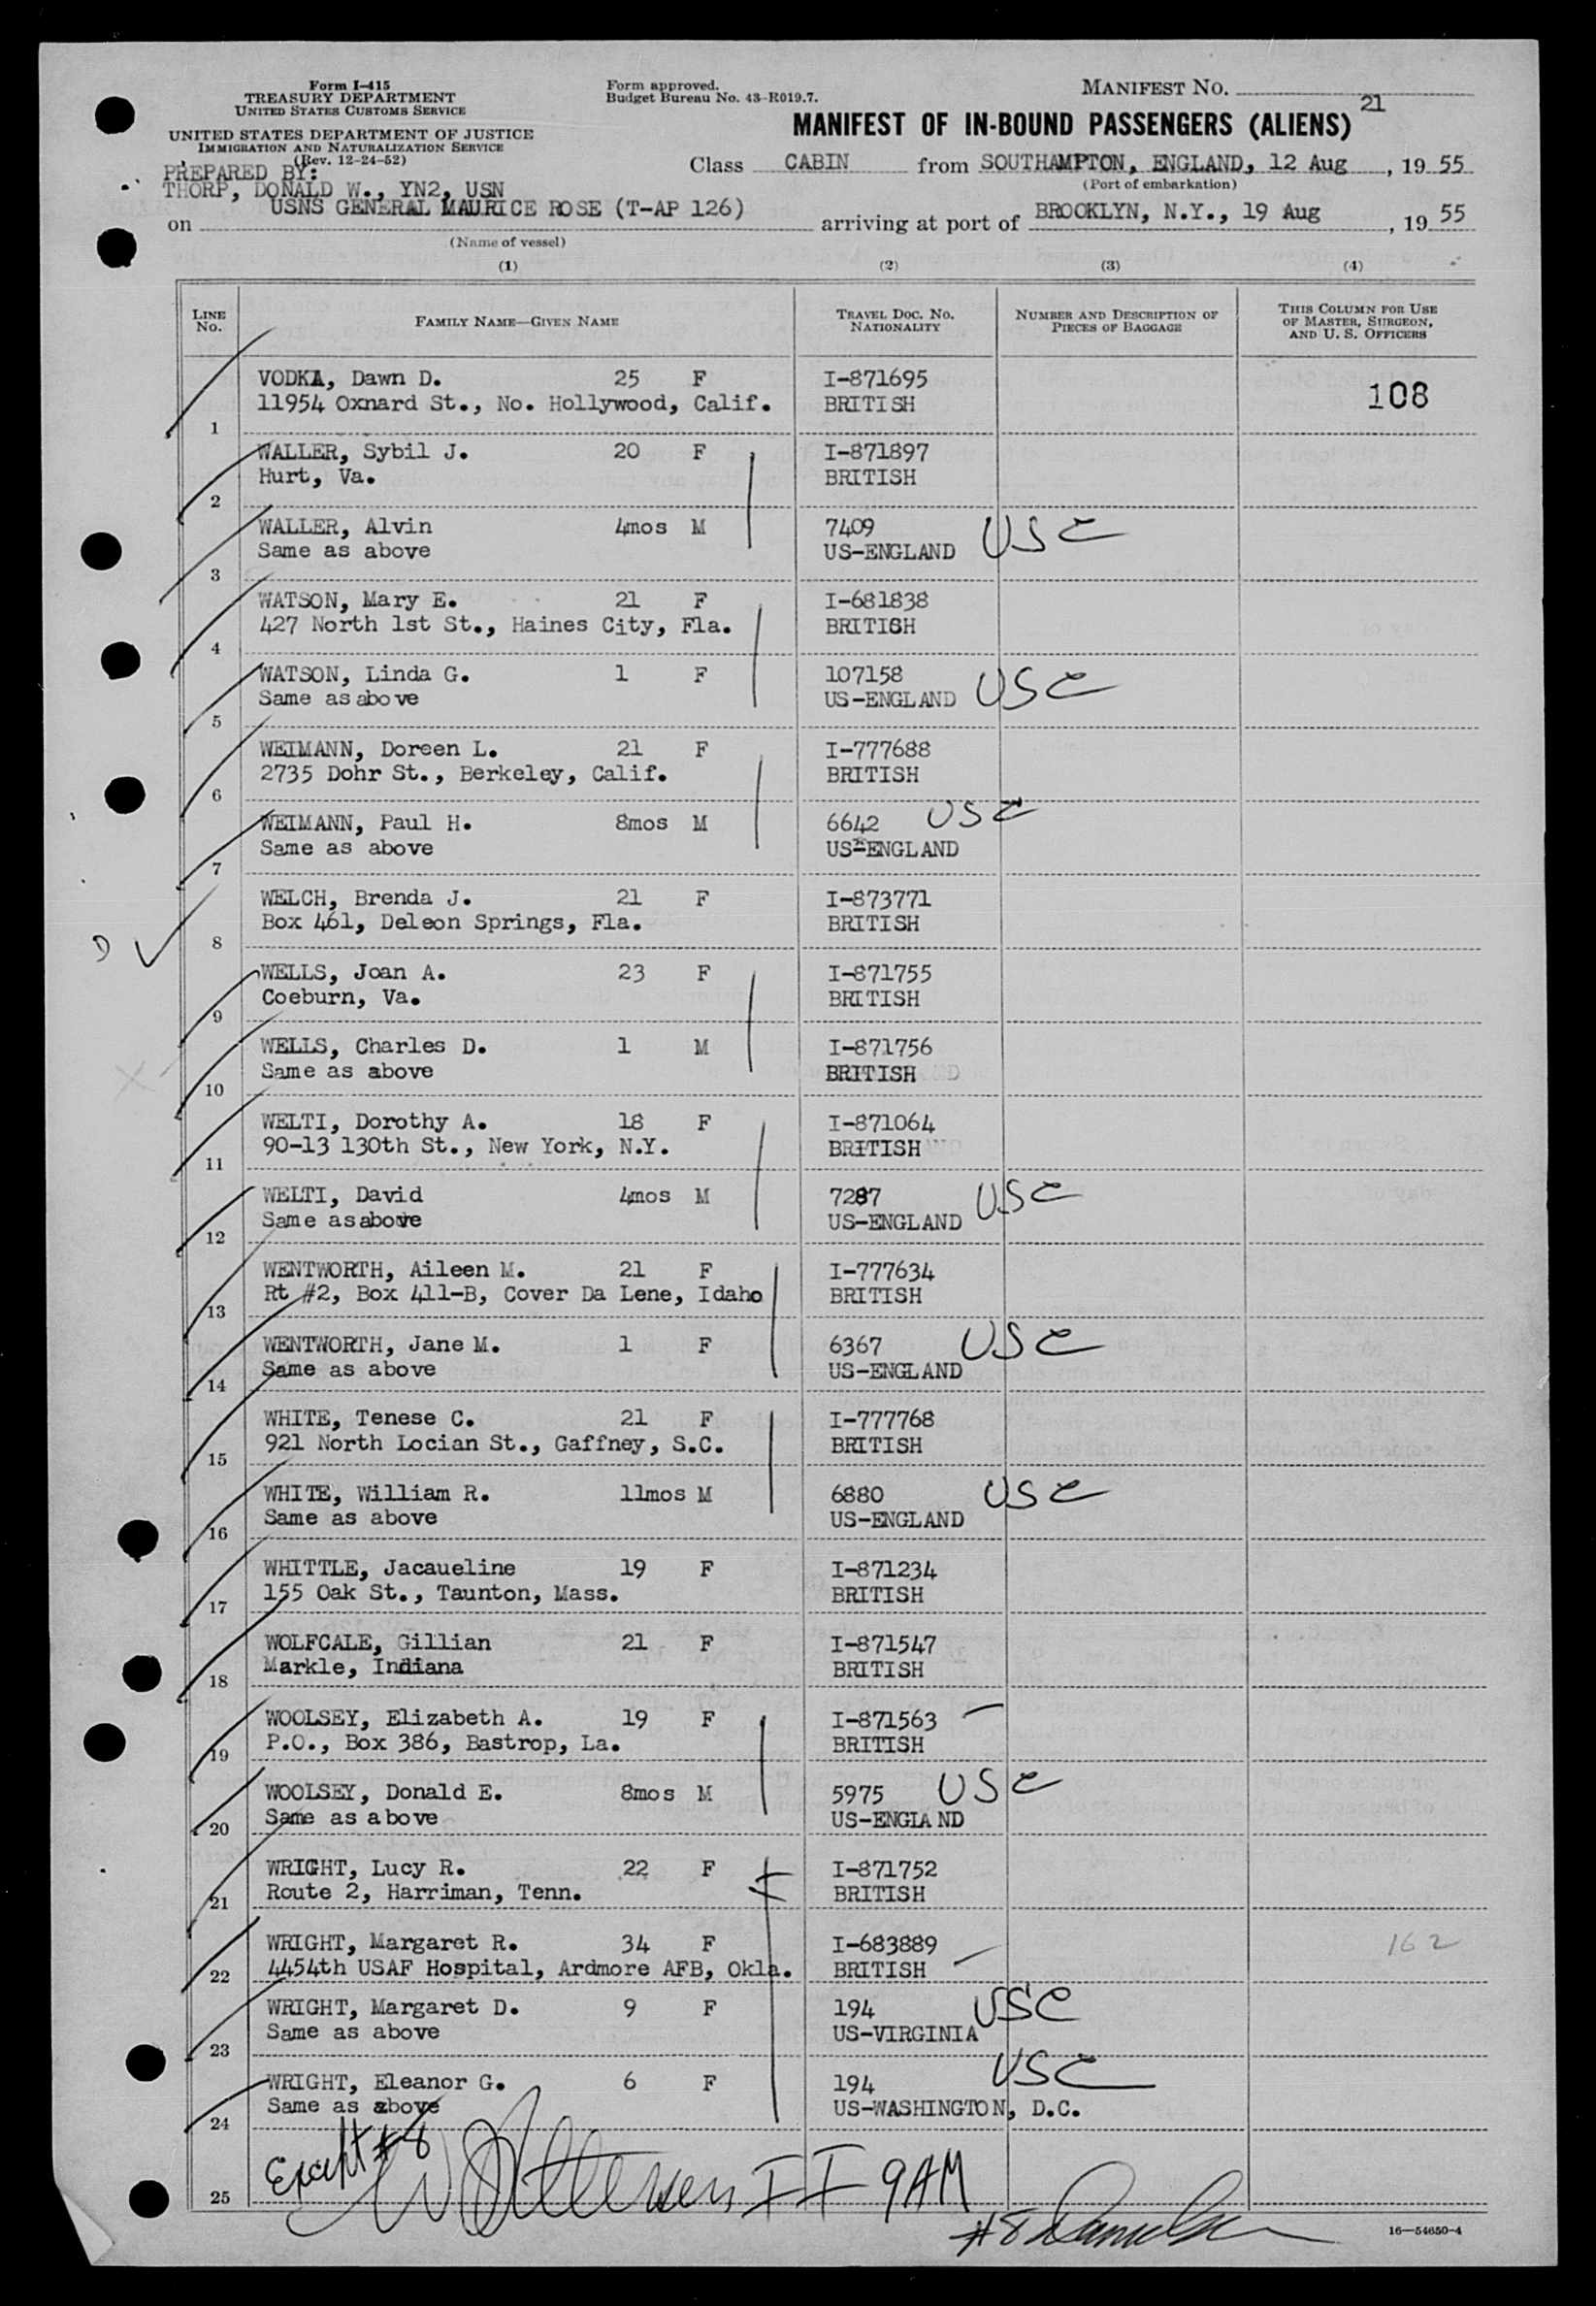 Form I-415
TREASURY DEPARTMENT
UNITED STATES CUSTOMS SERVICE
UNITED STATES DEPARTMENT OF JUSTICE
IMMIGRATION AND NATURALIZATION SERVICE
(Rev. 12-24-52)
Form approved.
Budget Bureau No. 43-R019.7.
MANIFEST NO.
21
MANIFEST OF IN-BOUND PASSENGERS (ALIENS)
PREPARED BY:
THORP, DONALD W., YN2, USN
Class CABIN from SOUTHAMPTON, ENGLAND, 12 Aug, 19 55
(Port of embarkation)
on USNS GENERAL MAURICE ROSE (T-AP 126) arriving at port of BROOKLYN, N.Y., 19 Aug, 19 55
(Name of vessel)
(1) (2) (3) (4)
LINE NO. FAMILY NAME—GIVEN NAME TRAVEL DOC. NO. NATIONALITY NUMBER AND DESCRIPTION OF PIECES OF BAGGAGE THIS COLUMN FOR USE OF MASTER, SURGEON, AND U. S. OFFICERS
VODKA, Dawn D. 25 F I-871695
11954 Oxnard St., No. Hollywood, Calif. BRITISH 108
1
WALLER, Sybil J. 20 F I-871897
Hurt, Va. BRITISH
2
WALLER, Alvin 4mos M 7409 USC
Same as above US-ENGLAND
3
WATSON, Mary E. 21 F I-681838
427 North 1st St., Haines City, Fla. BRITISH
4
WATSON, Linda G. 1 F 107158 USC
Same as above US-ENGLAND
5
WEIMANN, Doreen L. 21 F I-777688
2735 Dohr St., Berkeley, Calif. BRITISH
6
WEIMANN, Paul H. 8mos M 6642 USC
Same as above US-ENGLAND
7
WELCH, Brenda J. 21 F I-873771
Box 461, Deleon Springs, Fla. BRITISH
D 8
WELLS, Joan A. 23 F I-871755
Coeburn, Va. BRITISH
9
WELLS, Charles D. 1 M I-871756
Same as above BRITISH
10
WELTI, Dorothy A. 18 F I-871064
90-13 130th St., New York, N.Y. BRITISH
11
WELTI, David 4mos M 7287 USC
Same as above US-ENGLAND
12
WENTWORTH, Aileen M. 21 F I-777634
Rt #2, Box 411-B, Cover Da Lene, Idaho BRITISH
13
WENTWORTH, Jane M. 1 F 6367 USC
Same as above US-ENGLAND
14
WHITE, Tenese C. 21 F I-777768
921 North Locian St., Gaffney, S.C. BRITISH
15
WHITE, William R. 11mos M 6880 USC
Same as above US-ENGLAND
16
WHITTLE, Jacaueline 19 F I-871234
155 Oak St., Taunton, Mass. BRITISH
17
WOLFCALE, Gillian 21 F I-871547
Markle, Indiana BRITISH
18
WOOLSEY, Elizabeth A. 19 F I-871563
P.O., Box 386, Bastrop, La. BRITISH
19
WOOLSEY, Donald E. 8mos M 5975 USC
Same as above US-ENGLAND
20
WRIGHT, Lucy R. 22 F I-871752
Route 2, Harriman, Tenn. BRITISH
21
WRIGHT, Margaret R. 34 F I-683889 162
4454th USAF Hospital, Ardmore AFB, Okla. BRITISH
22
WRIGHT, Margaret D. 9 F 194 USC
Same as above US-VIRGINIA
23
WRIGHT, Eleanor G. 6 F 194 USC
Same as above US-WASHINGTON, D.C.
24
Except #8
II 9AM
25
#8
16—54650-4